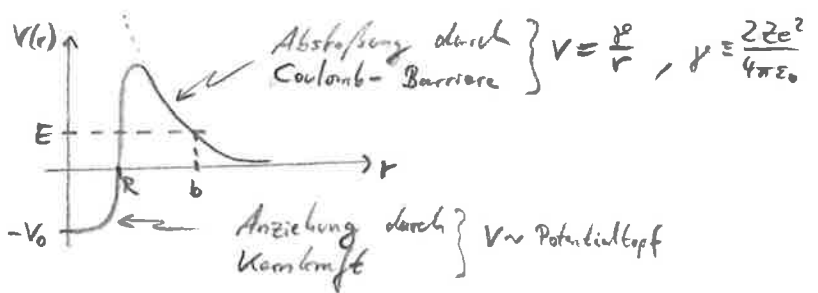 V(r)
Abstoßung durch
Coulomb-Barriere
V = γ/r , γ = 2Ze²/4πε₀
E
R b r
-V₀
Anziehung durch
Kernkraft
V ~ Potentialtopf